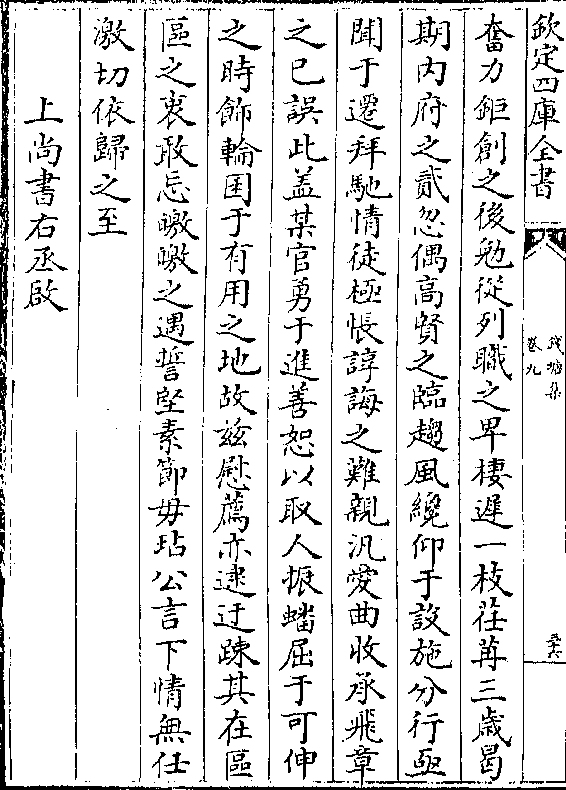 欽定四庫全書
錢塘集
卷九
奮力鉅創之後勉從列職之卑棲遲一枝荏苒三歳曷
期内府之貳忽偶高賢之臨趨風纔仰于設施分行亟
聞于遷拜馳情徒極悵諄誨之難親汎愛曲收承飛章
之已誤此盖某官勇于進善恕以取人振蟠屈于可伸
之時飾輪囷于有用之地故兹慰薦亦逮迂踈其在區
區之衷敢忘皦皦之遇誓堅素節毋玷公言下情無任
激切依歸之至
上尚書右丞啟